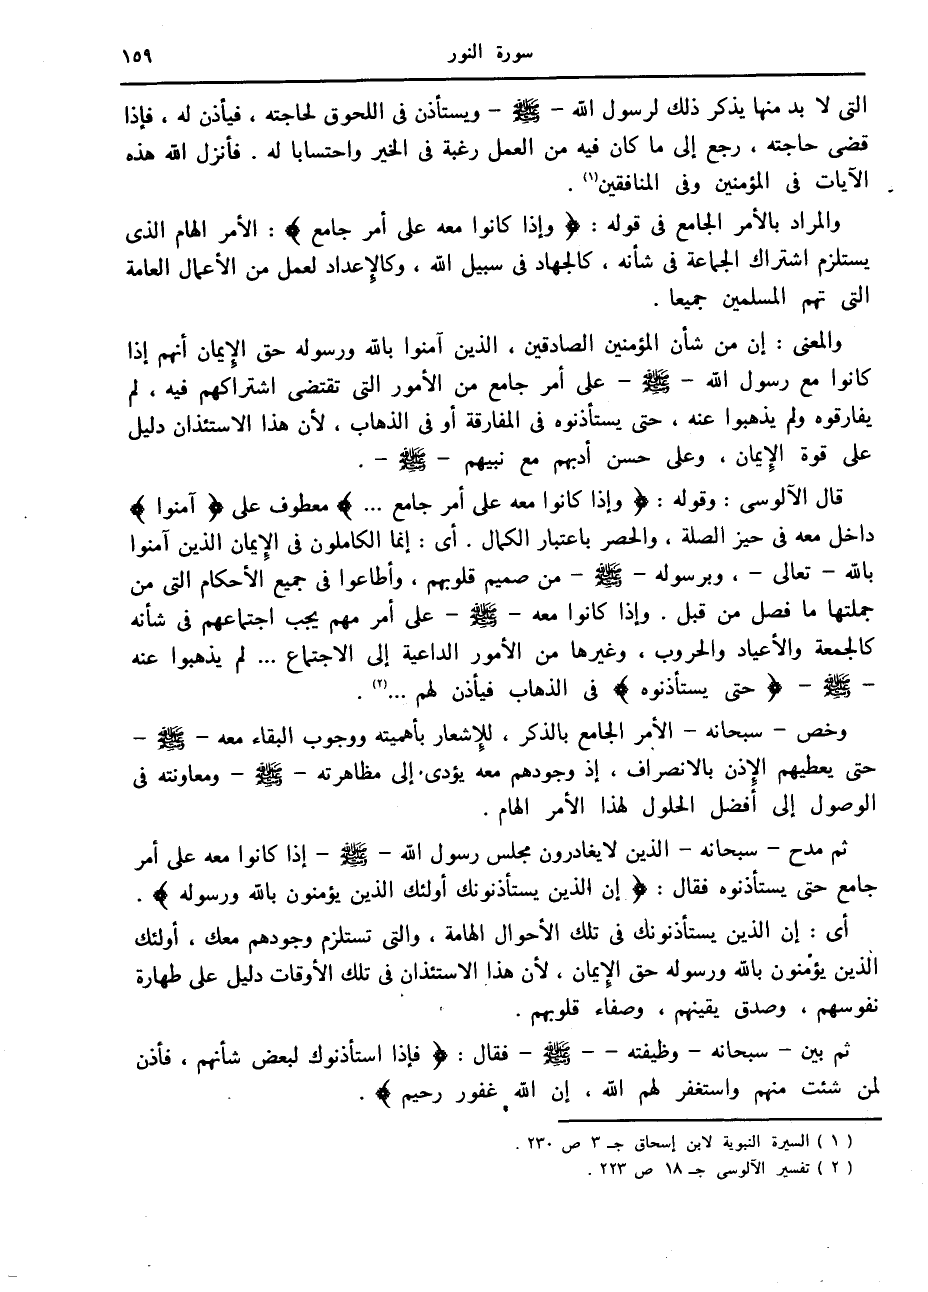 سورة النور ١٥٩
التى لا بد منها يذكر ذلك لرسول الله - ﷺ - ويستأذن فى اللحوق لحاجته ، فيأذن له ، فإذا
قضى حاجته ، رجع إلى ما كان فيه من العمل رغبة فى الخير واحتسابا له . فأنزل الله هذه
الآيات فى المؤمنين وفى المنافقين(١) .
والمراد بالأمر الجامع فى قوله : ﴿ وإذا كانوا معه على أمر جامع ﴾ : الأمر الهام الذى
يستلزم اشتراك الجماعة فى شأنه ، كالجهاد فى سبيل الله ، وكالإعداد لعمل من الأعمال العامة
التى تهم المسلمين جميعا .
والمعنى : إن من شأن المؤمنين الصادقين ، الذين آمنوا بالله ورسوله حق الإيمان أنهم إذا
كانوا مع رسول الله - ﷺ - على أمر جامع من الأمور التى تقتضى اشتراكهم فيه ، لم
يفارقوه ولم يذهبوا عنه ، حتى يستأذنوه فى المفارقة أو فى الذهاب ، لأن هذا الاستئذان دليل
على قوة الإيمان ، وعلى حسن أدبهم مع نبيهم - ﷺ - .
قال الآلوسى : وقوله : ﴿ وإذا كانوا معه على أمر جامع ... ﴾ معطوف على ﴿ آمنوا ﴾
داخل معه فى حيز الصلة ، والحصر باعتبار الكمال . أى : إنما الكاملون فى الإيمان الذين آمنوا
بالله - تعالى - ، وبرسوله - ﷺ - من صميم قلوبهم ، وأطاعوا فى جميع الأحكام التى من
جملتها ما فصل من قبل . وإذا كانوا معه - ﷺ - على أمر مهم يجب اجتماعهم فى شأنه
كالجمعة والأعياد والحروب ، وغيرها من الأمور الداعية إلى الاجتماع ... لم يذهبوا عنه
- ﷺ - ﴿ حتى يستأذنوه ﴾ فى الذهاب فيأذن لهم ...(٢) .
وخص - سبحانه - الأمر الجامع بالذكر ، للإشعار بأهميته ووجوب البقاء معه - ﷺ -
حتى يعطيهم الإذن بالانصراف ، إذ وجودهم معه يؤدى إلى مظاهرته - ﷺ - ومعاونته فى
الوصول إلى أفضل الحلول لهذا الأمر الهام .
ثم مدح - سبحانه - الذين لايغادرون مجلس رسول الله - ﷺ - إذا كانوا معه على أمر
جامع حتى يستأذنوه فقال : ﴿ إن الذين يستأذنونك أولئك الذين يؤمنون بالله ورسوله ﴾ .
أى : إن الذين يستأذنونك فى تلك الأحوال الهامة ، والتى تستلزم وجودهم معك ، أولئك
الذين يؤمنون بالله ورسوله حق الإيمان ، لأن هذا الاستئذان فى تلك الأوقات دليل على طهارة
نفوسهم ، وصدق يقينهم ، وصفاء قلوبهم .
ثم بين - سبحانه - وظيفته - - ﷺ - فقال : ﴿ فإذا استأذنوك لبعض شأنهم ، فأذن
لمن شئت منهم واستغفر لهم الله ، إن الله غفور رحيم ﴾ .
( ١ ) السيرة النبوية لابن إسحاق جـ ٣ ص ٢٣٠ .
( ٢ ) تفسير الآلوسى جـ ١٨ ص ٢٢٣ .